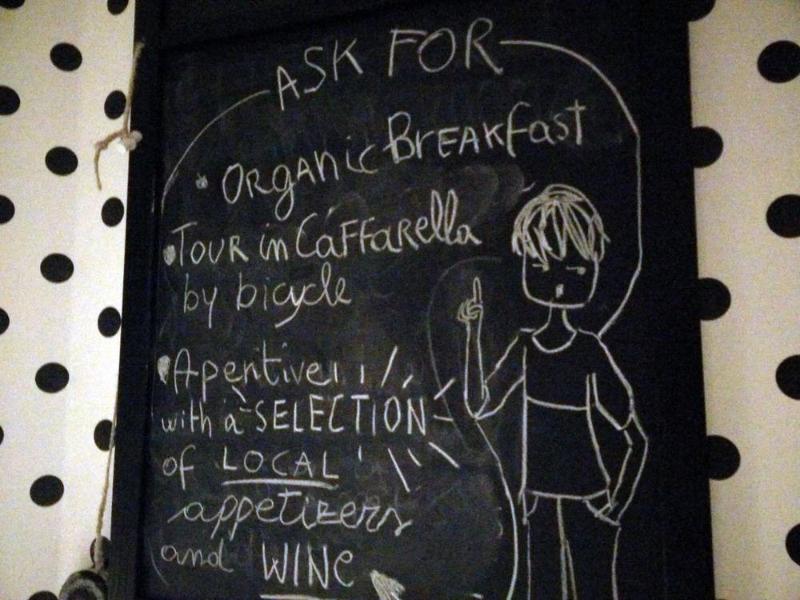 ASK FOR
• ORganic BREAKfast
• TOUR in CaFFaRella
by bicycle
• Aperitive
with a SELECTION
of LOCAL
appetizers
and WINE